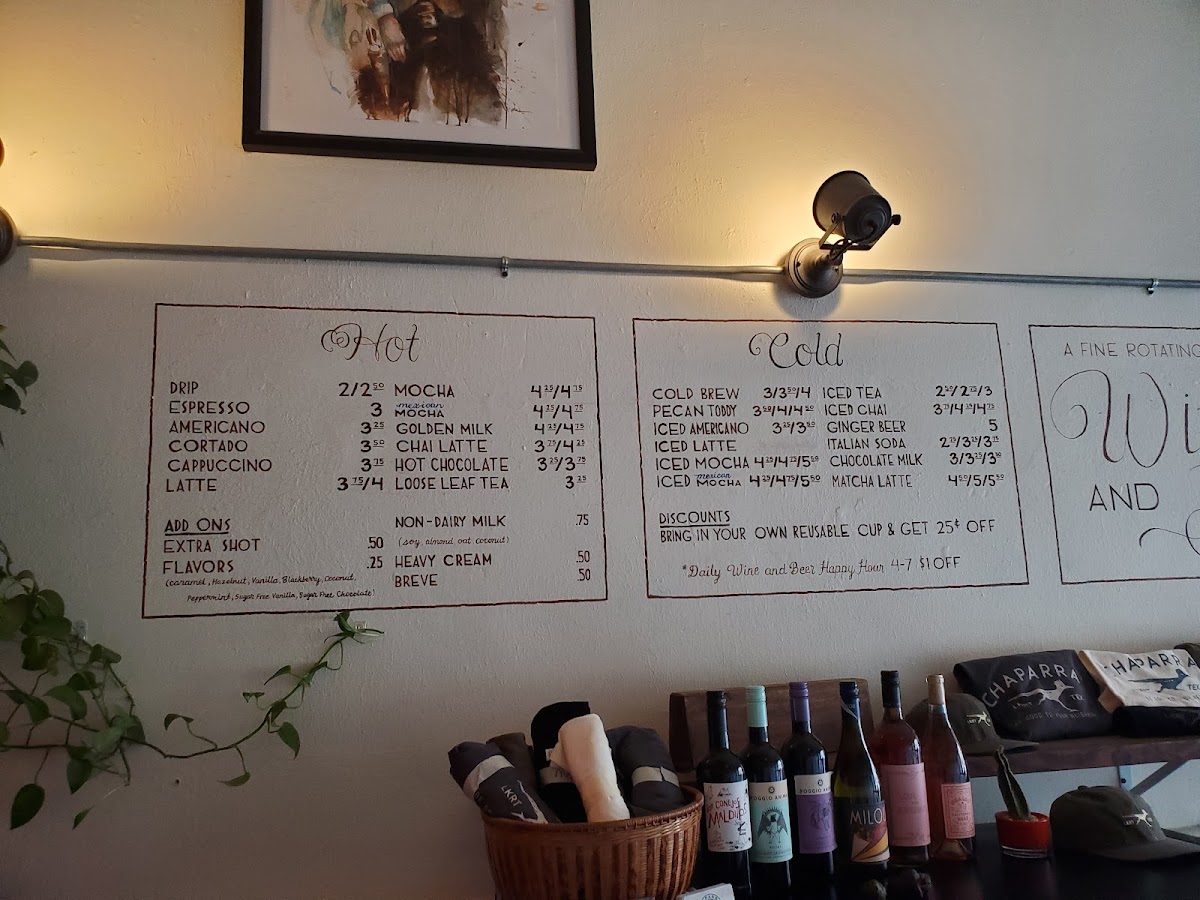 Hot
DRIP 2/2.50
ESPRESSO 3
AMERICANO 3.25
CORTADO 3.50
CAPPUCCINO 3.75
LATTE 3.75/4
MOCHA 4.25/4.75
mexican MOCHA 4.25/4.75
GOLDEN MILK 4.25/4.75
CHAI LATTE 3.75/4.25
HOT CHOCOLATE 3.25/3.75
LOOSE LEAF TEA 3.25
ADD ONS
EXTRA SHOT .50
FLAVORS .25
(Caramel, Hazelnut, Vanilla, Blackberry, Coconut,
Peppermint, Sugar Free Vanilla, Sugar Free Chocolate)
NON-DAIRY MILK .75
(soy, almond, oat, coconut)
HEAVY CREAM .50
BREVE .50
Cold
COLD BREW 3/3.50/4
PECAN TODDY
ICED AMERICANO
ICED LATTE
ICED MOCHA 4.25/4.75/5.50
ICED mexican MOCHA 4.25/4.75/5.50
ICED TEA
ICED CHAI
GINGER BEER 5
ITALIAN SODA
CHOCOLATE MILK
MATCHA LATTE 4.50/5/5.50
DISCOUNTS
BRING IN YOUR OWN REUSABLE CUP & GET 25¢ OFF
*Daily Wine and Beer Happy Hour 4-7 $1 OFF
A FINE ROTATING
Wi
AND
LKRT
CONEJOS
MALDITOS
POGGIO
POGGIO
MILO
CHAPARRA
CHAPARRA